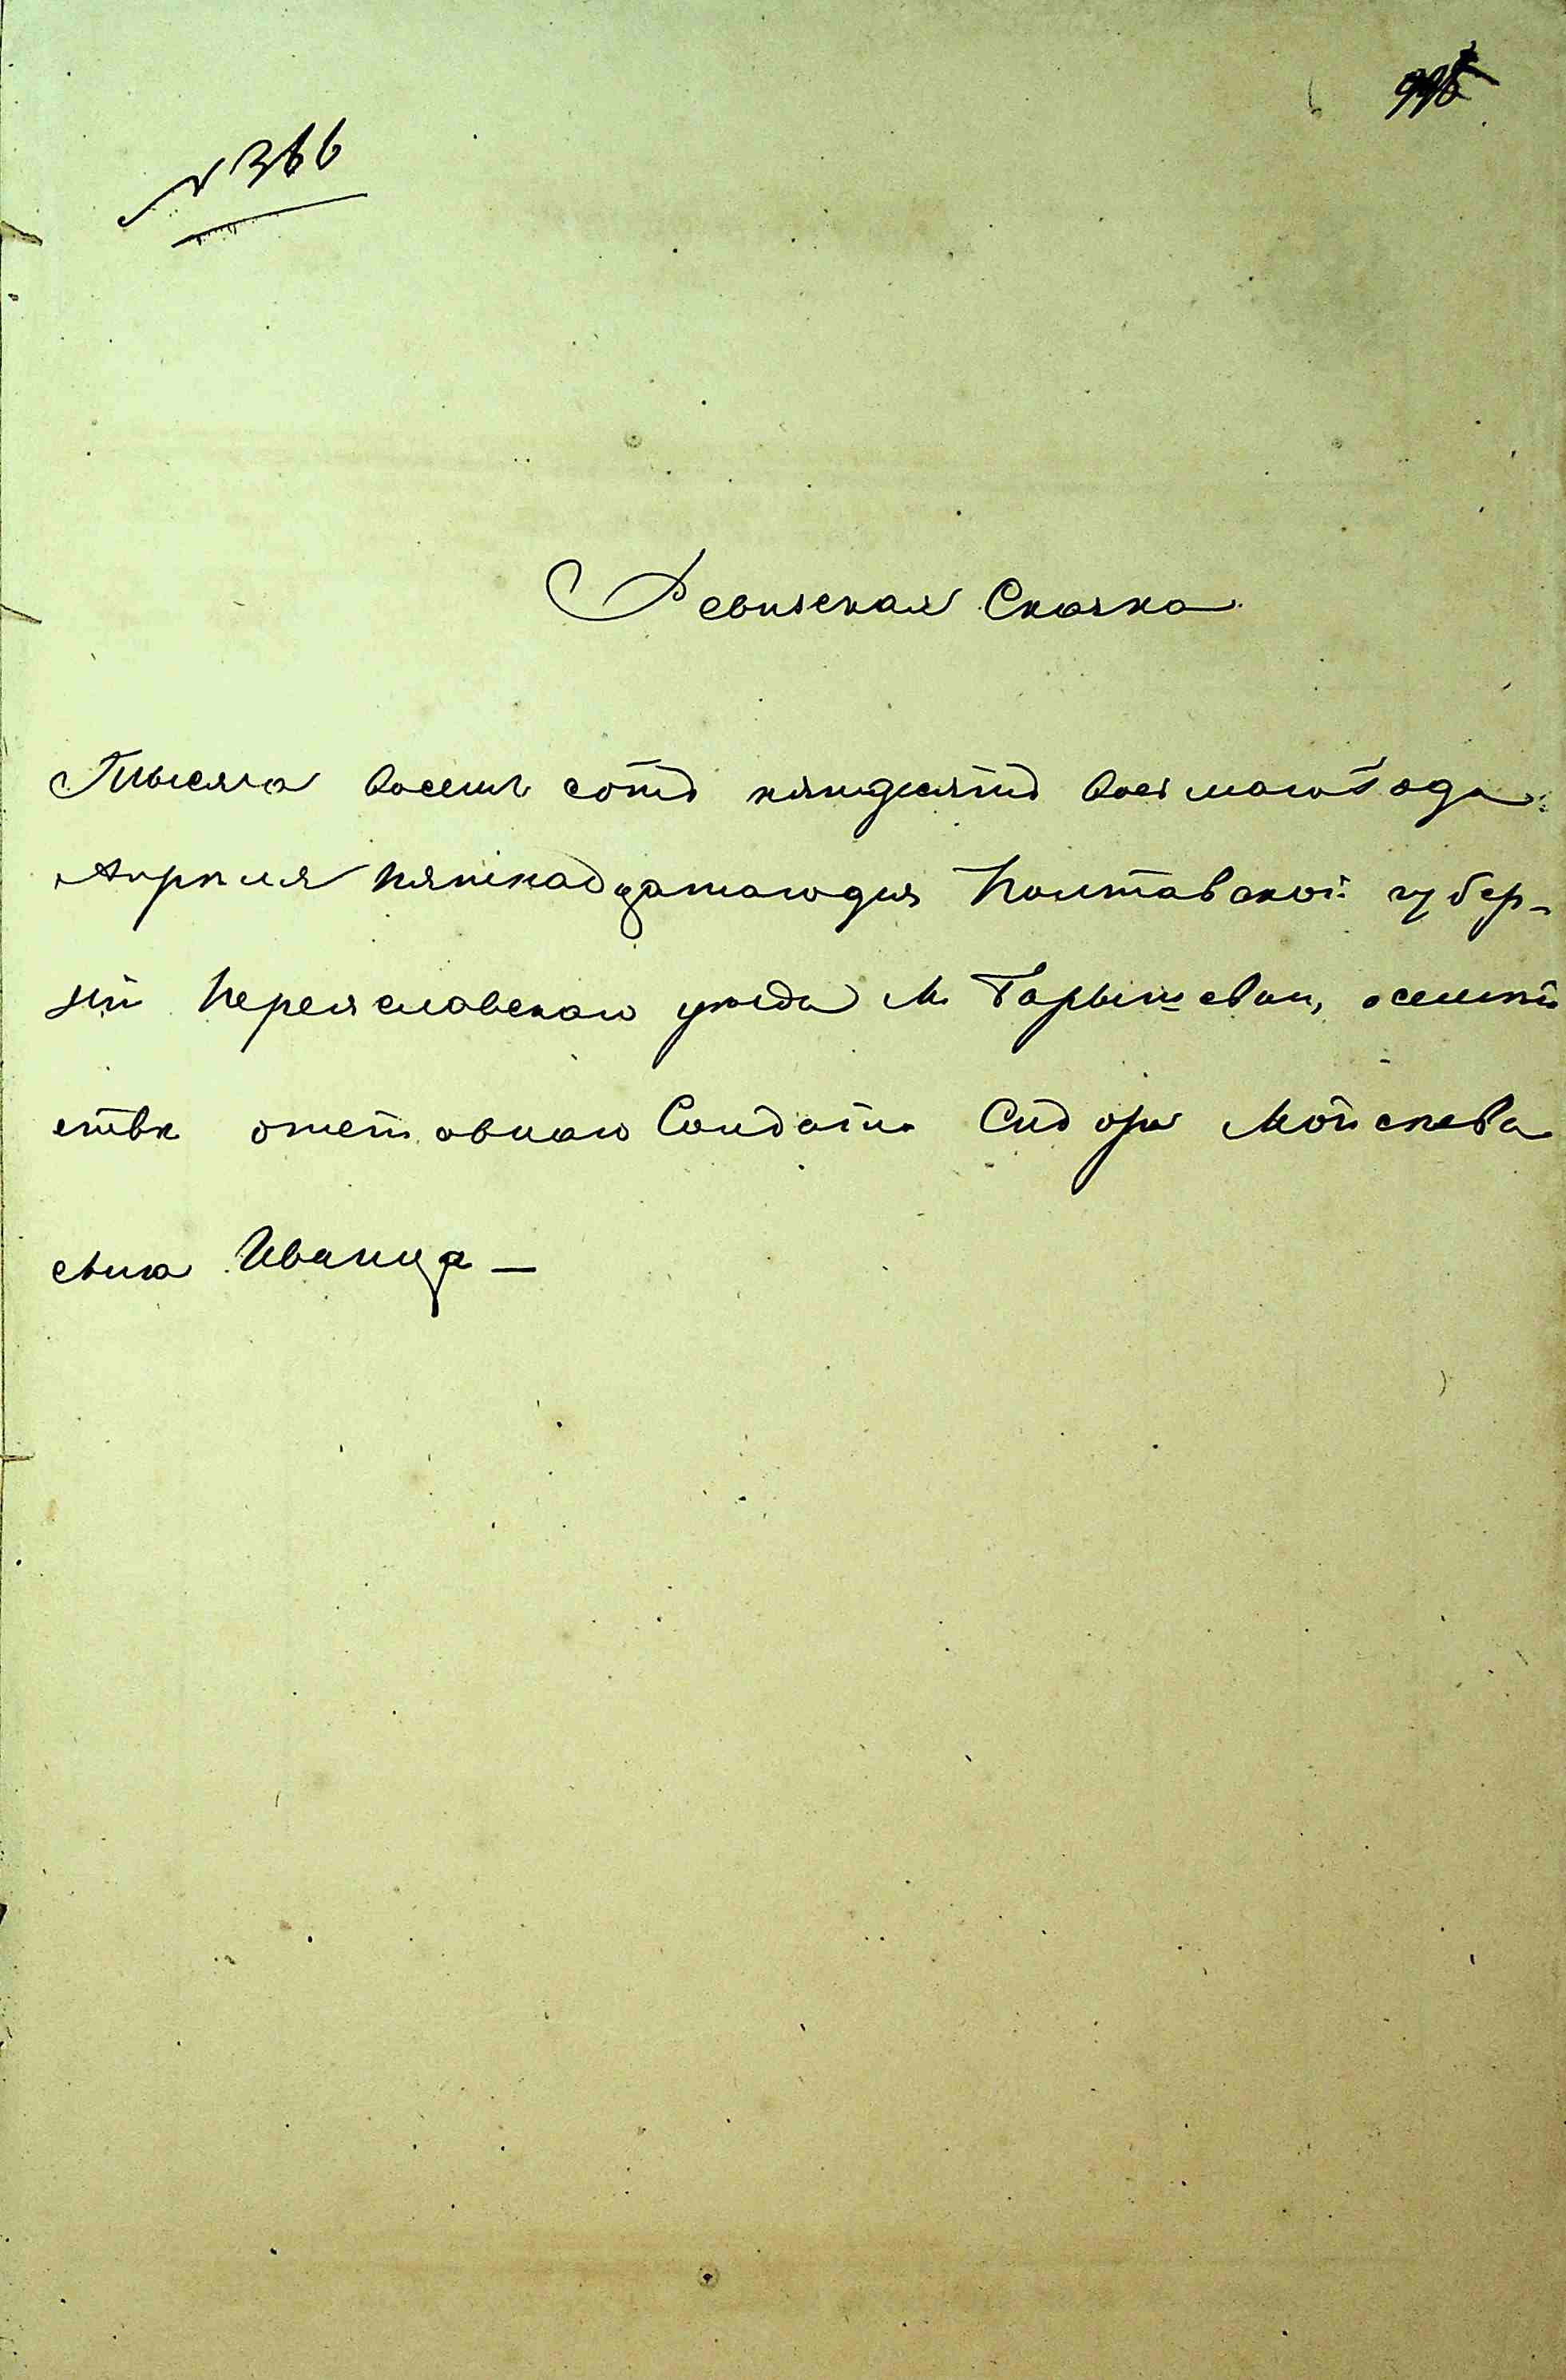 № 366
Ревизская Сказка
Тысяча восемь сотъ пятдесятъ восмаго Года
Апреля пятнадцатаго дня Полтавской губер-
ніи Переяславскаго уезда М. Гарышевки, о семей
стве отставнаго Солдата Сидора Мойсеева
сына Иваница –